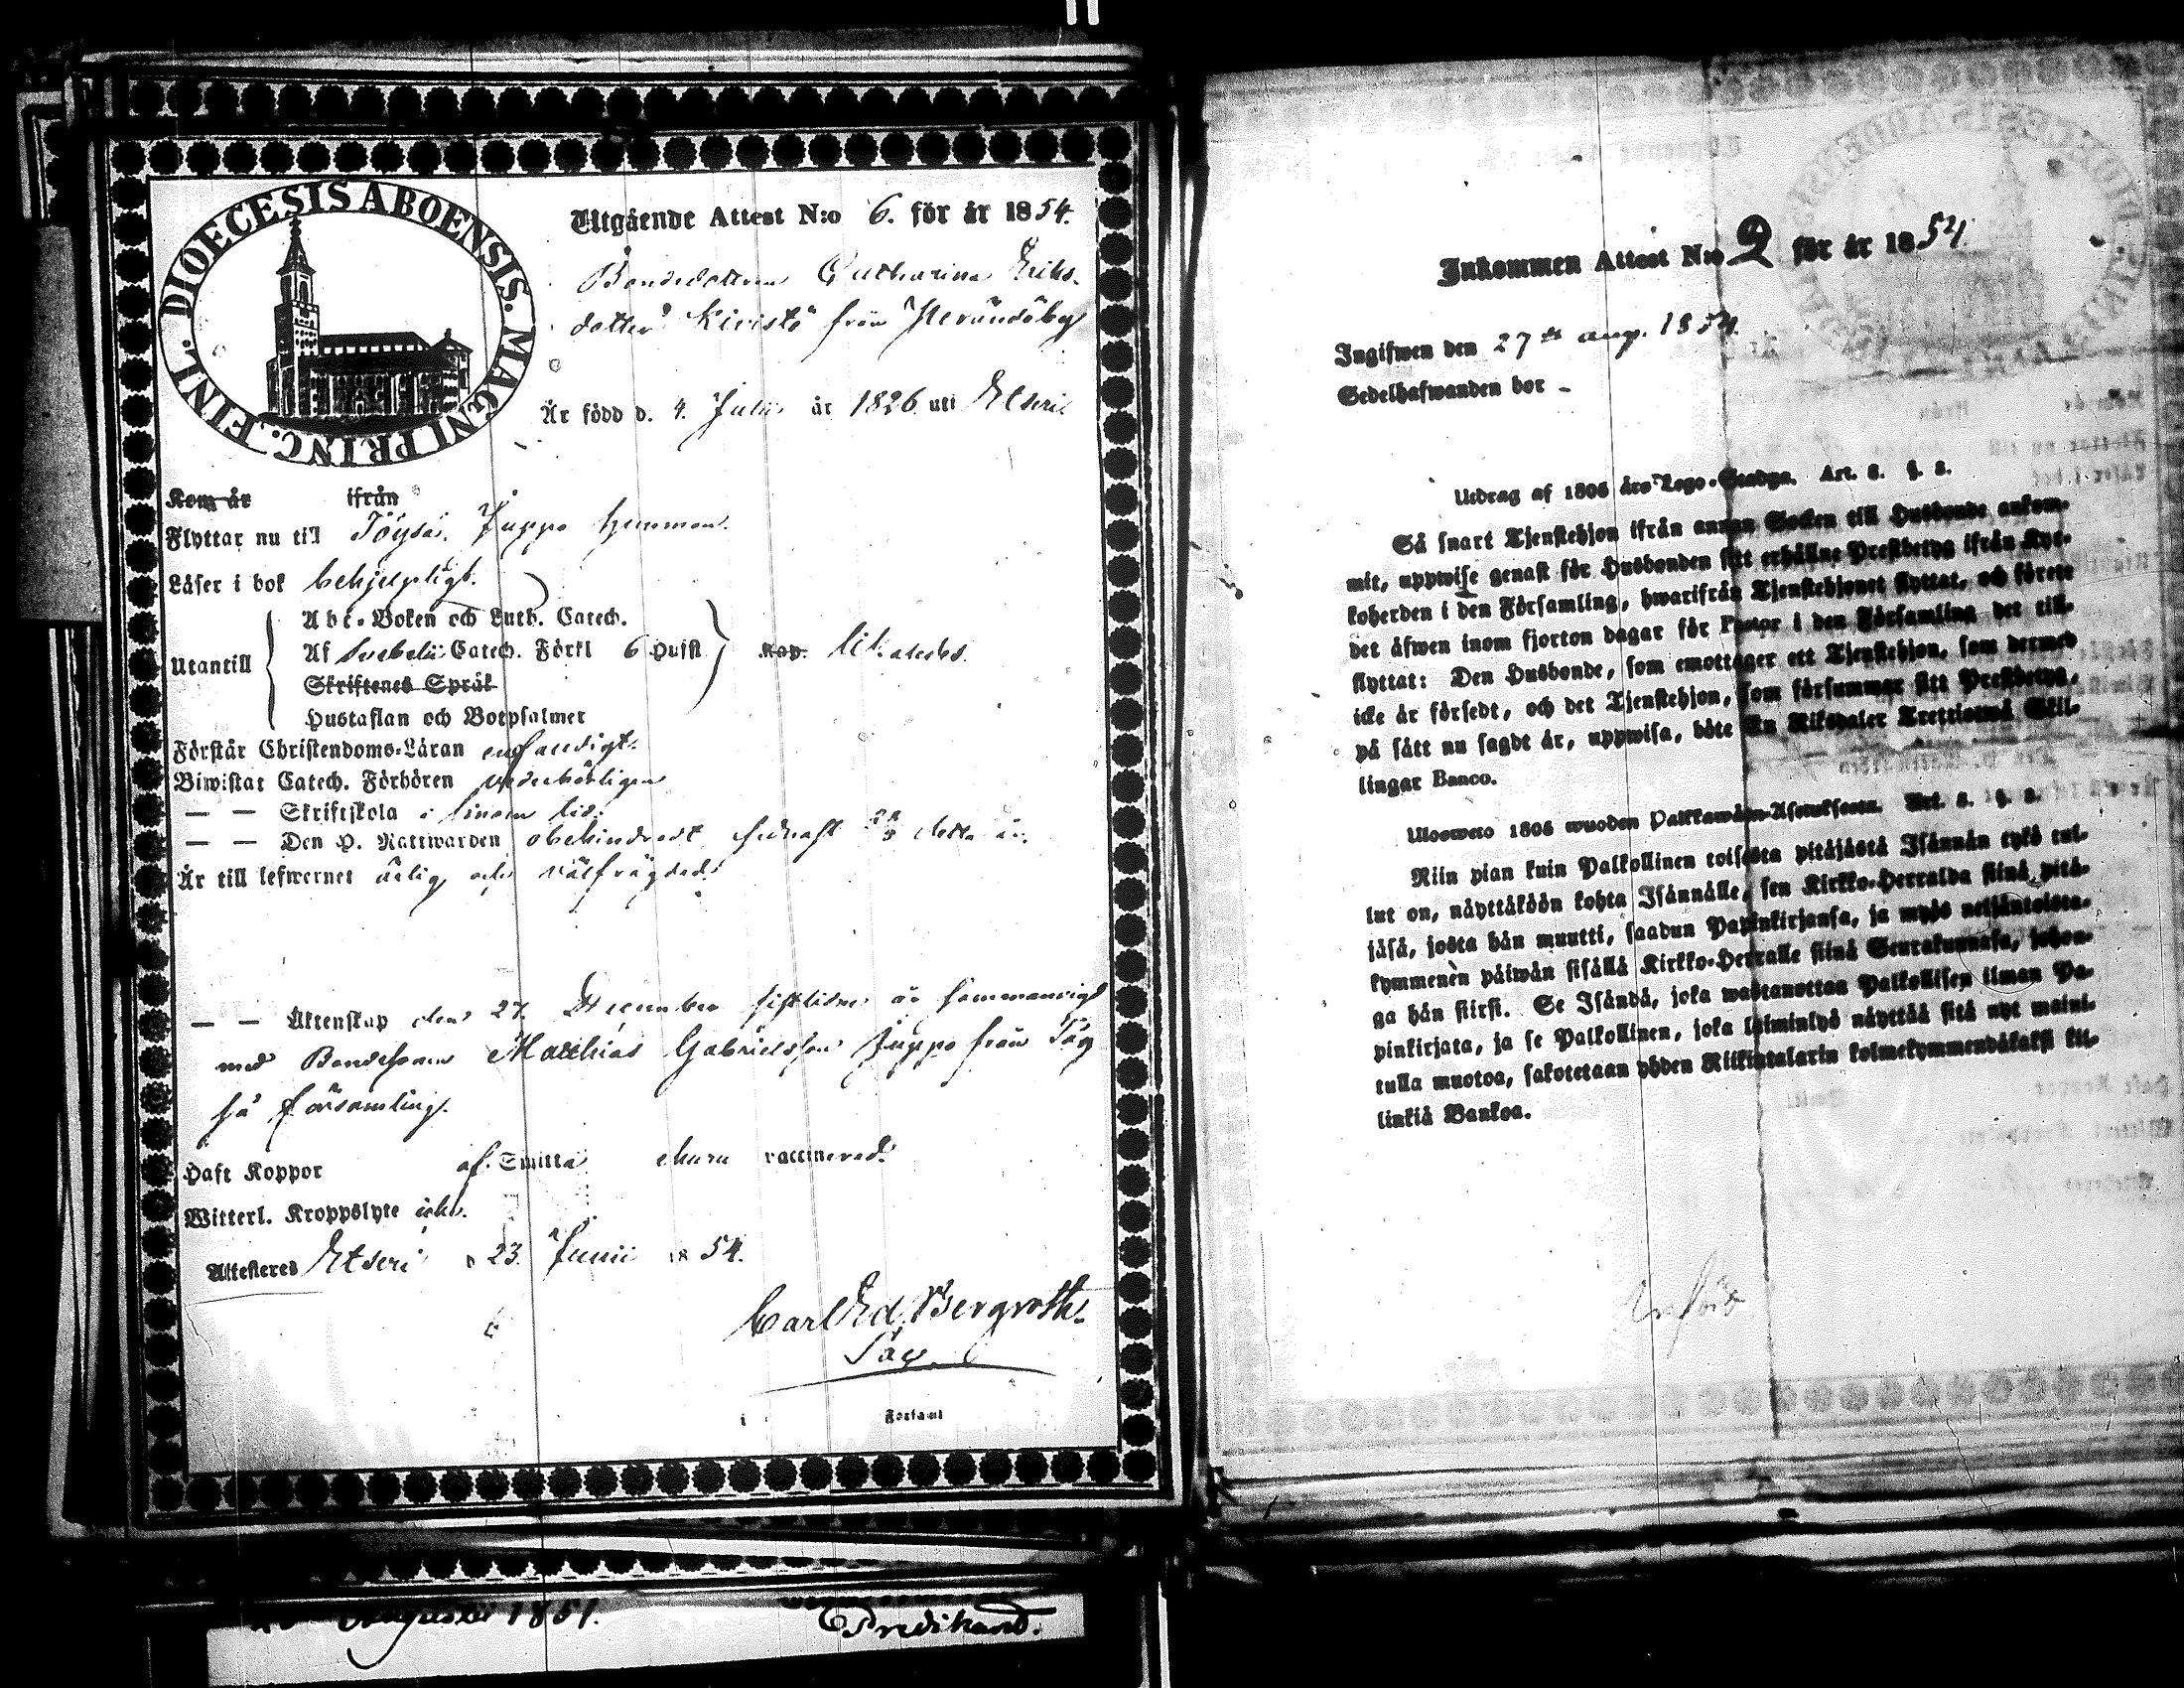 DIOECESIS ABOENSIS. MAGNI PRINC. FINL.
Utgående Attest N:o 6. för år 1854.
Bondedottren Catharina Eriks-
dotter Kivistö från Peränneby
Är född d. 4. Julii år 1826 uti Etseri
Kom år ifrån
Flyttar nu till Töysä. Juppo hemman.
Läser i bok behjelpligt.
Utantill
Abc-Boken och Luth. Catech.
Af Svebelii Catech. Förkl 6 Hufst
Skriftenes Språk
Hustaflan och Botpsalmer
Kap. likaledes.
Förstår Christendoms-Läran enfaldigt.
Biwistat Catech. Förhören vederbörligen
— — Skriftskola i sinom tid.
— — Den H. Nattwarden obehindradt, sednast detta år.
Är till lefwernet ärlig och välfrägdad.
— — Äktenskap den 27. December sistlidne år sammanvigd
med Bondesonen Matthias Gabrielsson Juppo från Töy
sä församling.
Haft Koppor af Smitta vaccinerad.
Witterl. Kroppslyte icke.
Attesteras Etseri d 23. Junii 1854.
Carl Ed. Bergroth.
i Församl
Augusti 1851.
Predikand.
Inkommen Attest N:o 2 för år 1854.
Ingifwen den 27de aug. 1854.
Sedelhafwanden bor -
Utdrag af 1805 års Lego-Stadga. Art. 8. §. 8.
Så snart Tjenstehjon ifrån annan Socken till Husbonde ankom-
mit, uppwise genast för Husbonden sitt erhållne Prestbetyg ifrån Kyr-
koherden i den Församling, hwarifrån Tjenstehjonet flyttat, och förete
det äfwen inom fjorton dagar för Pastor i den Församling det till-
flyttat: Den Husbonde, som emottager ett Tjenstehjon, som dermed
icke är försedt, och det Tjenstehjon, som försummar sitt Prestbetyg,
på sätt nu sagdt är, uppwisa, böte En Riksdaler Trettiotwå Skil-
lingar Banco.
Uloswetto 1805 wuoden Palkkawäen-Asetuksesta. Art. 8. §. 8.
Niin pian kuin Palkollinen toisesta pitäjästä Isännän tykö tul-
lut on, näyttäköön kohta Isännälle, sen Kirkko-Herralda siinä pitä-
jäsä, josta hän muutti, saadun Papinkirjansa, ja myös neljäntoista-
kymmenen päiwän sisällä Kirkko-Herralle siinä Seurakunnasa, johon-
ga hän siirsi. Se Isändä, joka wastanottaa Palkollisen ilman Pa-
pinkirjata, ja se Palkollinen, joka laiminlyö näyttää sitä nyt maini-
tulla muotoa, sakotetaan yhden Riikintalarin kolmekymmendäkaksi kil-
linkiä Bankoa.